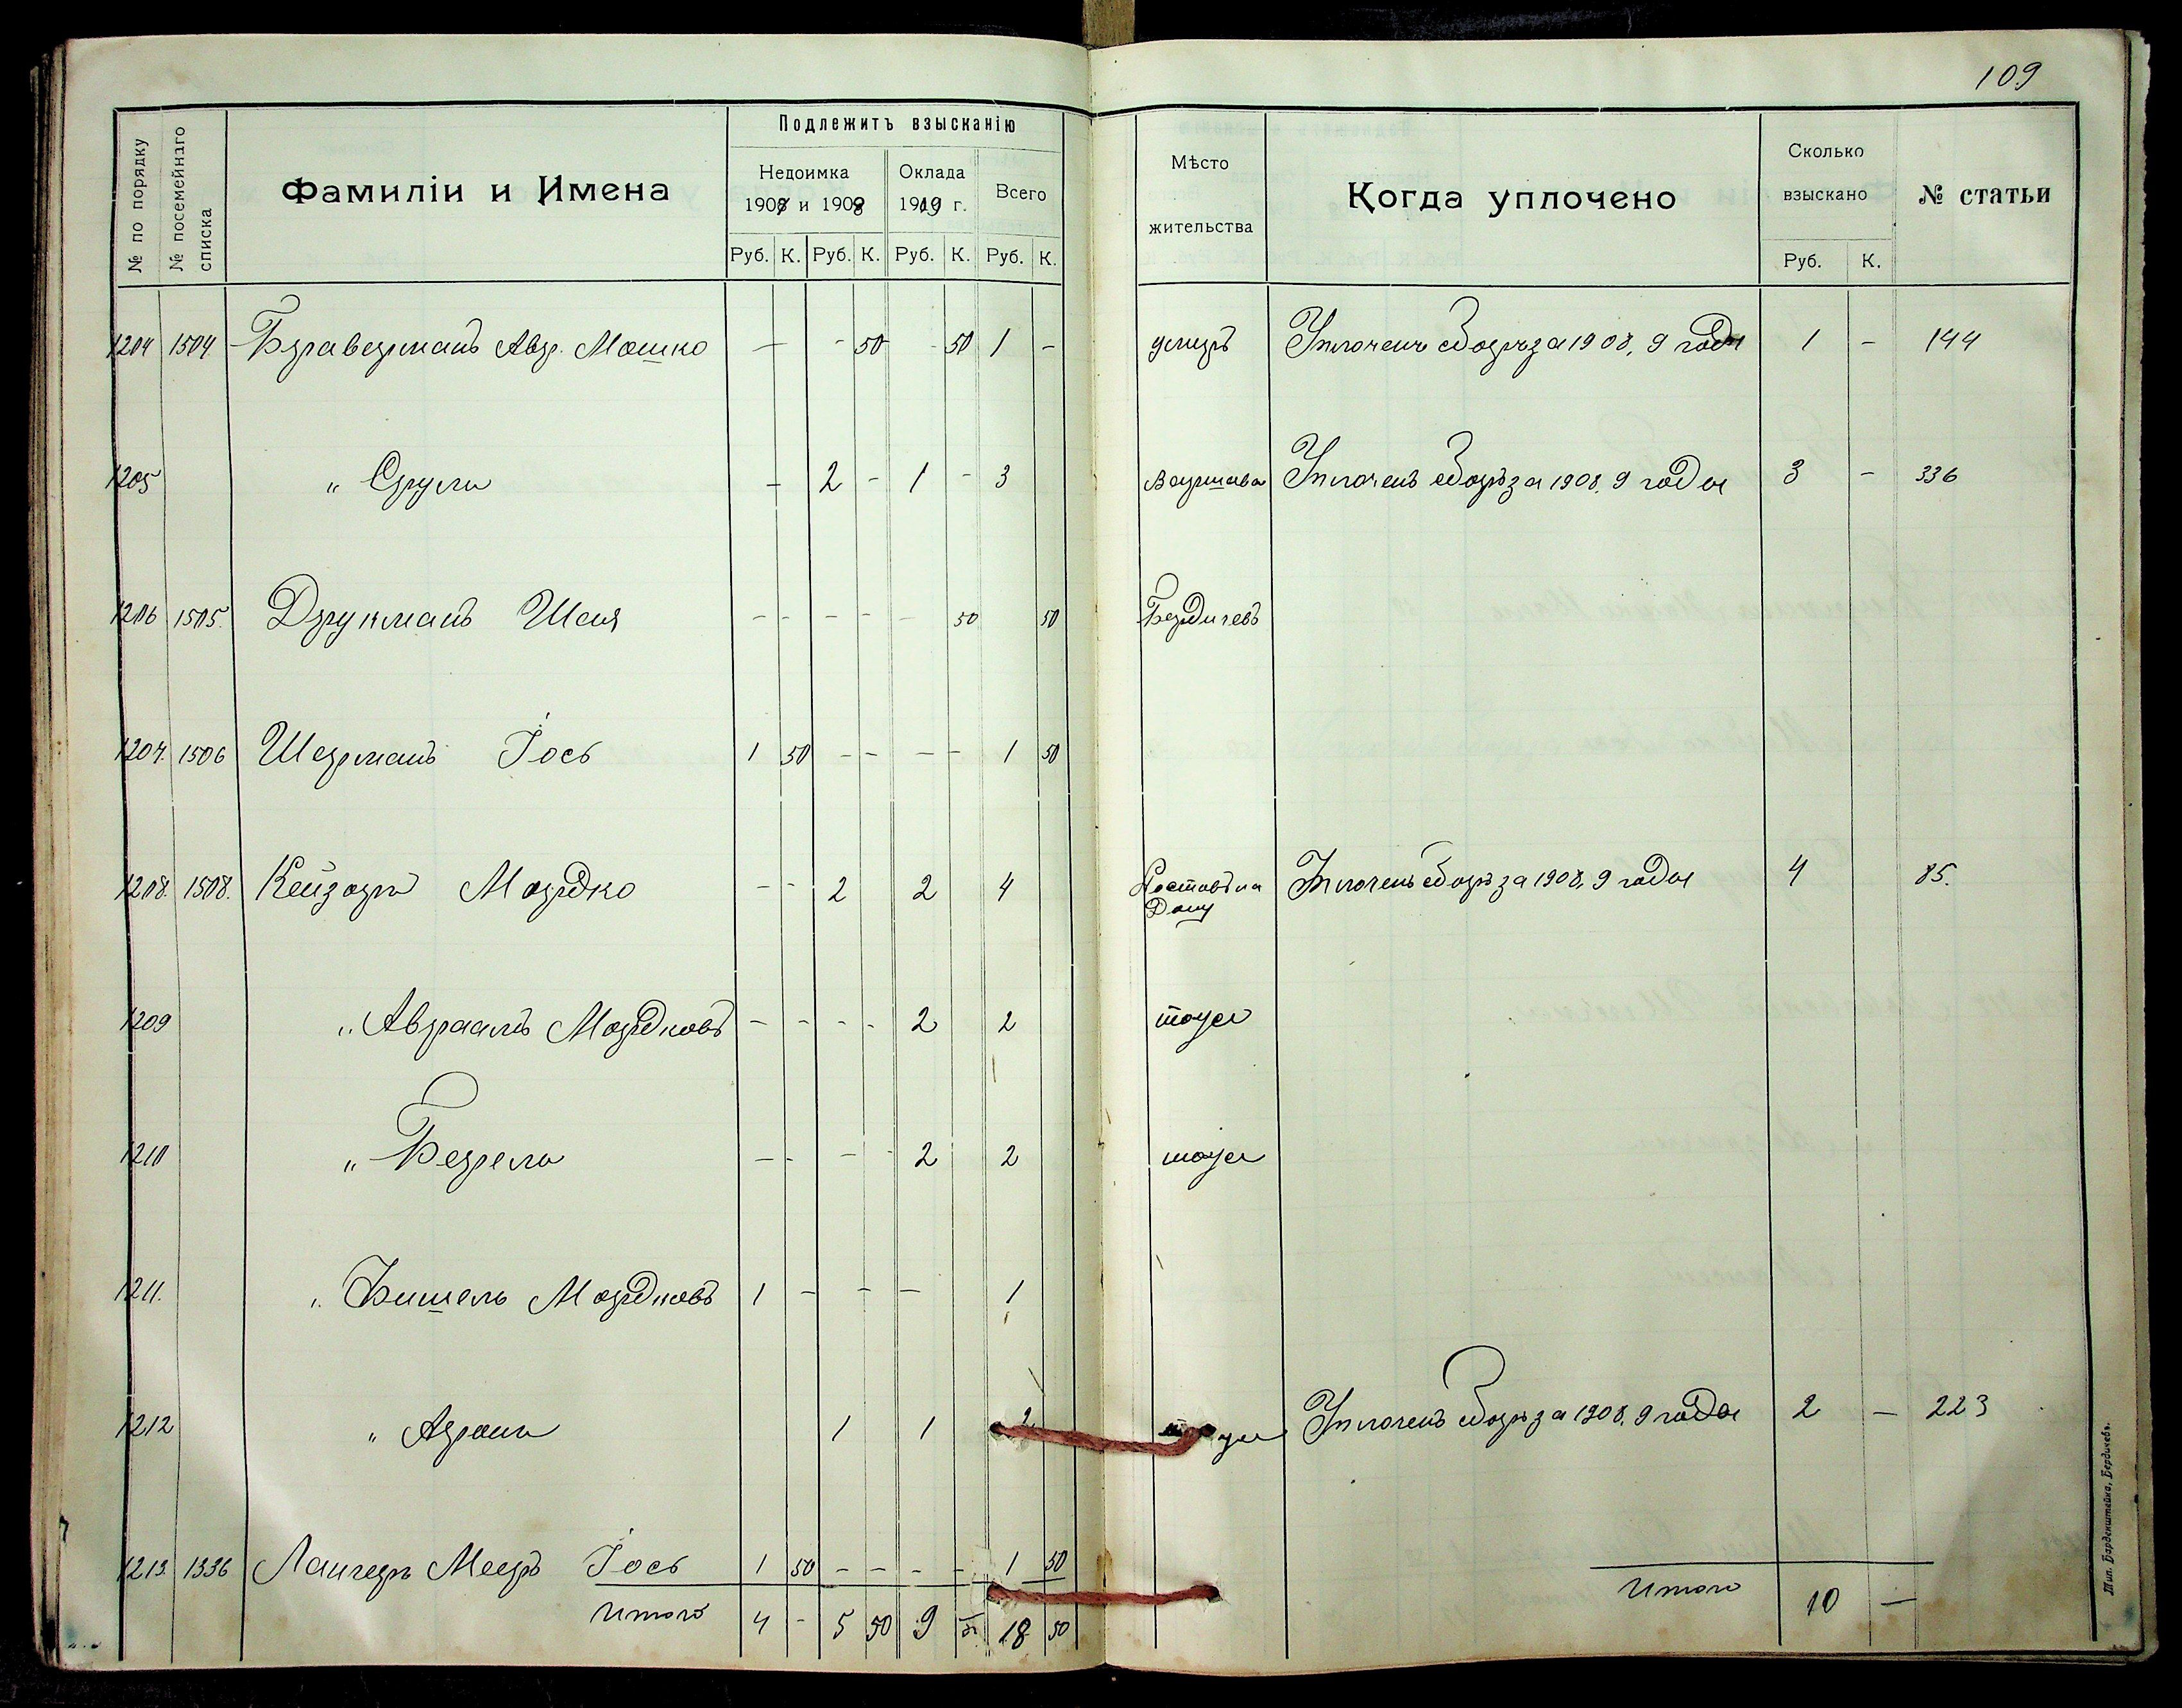 109
№ по порядку
№ посемейнаго списка
Фамиліи и Имена
Подлежитъ взысканію
Недоимка
1907 и 1908
Оклада
1909 г.
Всего
Руб. К. Руб. К. Руб. К. Руб. К.
Мѣсто
жительства
Когда уплочено
Сколько
взыскано
Руб. К.
№ статьи
1204 1504 Браверманъ Авр. Мошко — - 50 - 50 1 - умеръ Уплоченъ сборъ за 1908, 9 годы 1 - 144
1205 " Сруль - 2 - 1 - 3 Варшава Уплоченъ сборъ за 1908, 9 годы 3 - 336
1206 1505. Друкманъ Шая - - - - - 50 50 Бердичевъ
1207. 1506 Шерманъ Іось 1 50 - - - - 1 50
1208. 1508. Кейзеръ Мордко - - 2 2 4 Ростовъ на Дону Уплоченъ сборъ за 1908, 9 годы 4 85.
1209 " Авраамъ Мордковъ - - - - 2 2 тоже
1210 " Берель - - - - 2 2 тоже
1211. " Фишель Мордковъ 1 - - - 1
1212 " Аронъ 1 1 2 тоже Уплоченъ сборъ за 1908, 9 годы 2 - 223
1213. 1336 Лангеръ Мееръ Іось 1 50 - - - - 1 50
Итого 4 - 5 50 9 - 18 50
Итого 10 -
Тип. Барденштейна, Бердичевъ.